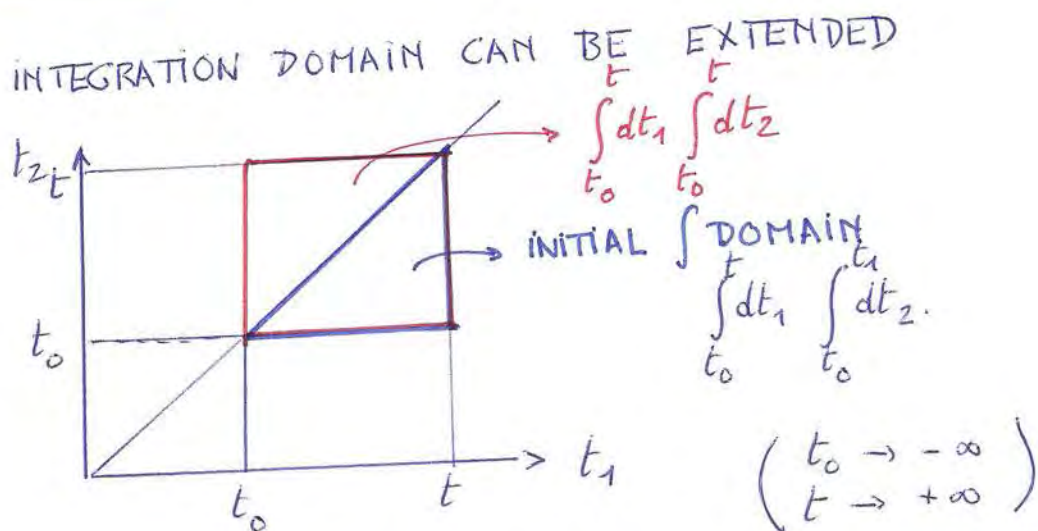 INTEGRATION DOMAIN CAN BE EXTENDED
∫_{t₀}^{t} dt₁ ∫_{t₀}^{t} dt₂
t₂
t
INITIAL ∫ DOMAIN
∫_{t₀}^{t} dt₁ ∫_{t₀}^{t₁} dt₂.
t₀
t₁
t₀ t
( t₀ → - ∞
t → + ∞ )